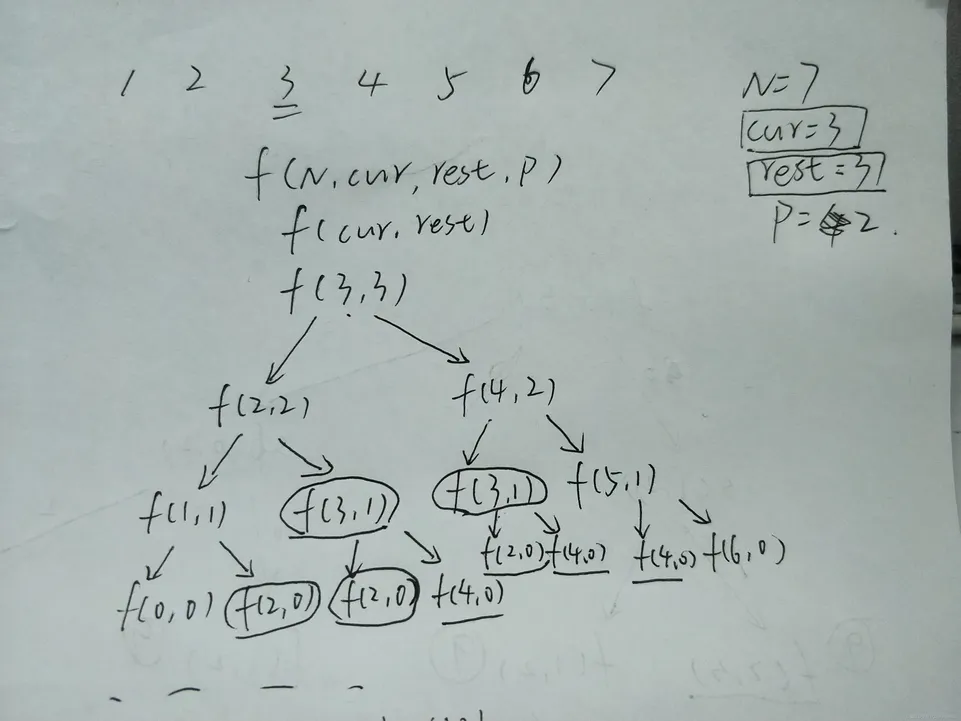 1 2 3 4 5 6 7
N=7
cur=3
rest=3
P=2.
f(N,cur,rest,P)
f(cur,rest)
f(3,3)
f(2,2) f(4,2)
f(1,1) f(3,1) f(3,1) f(5,1)
f(2,0) f(4,0) f(4,0) f(6,0)
f(0,0) f(2,0) f(2,0) f(4,0)